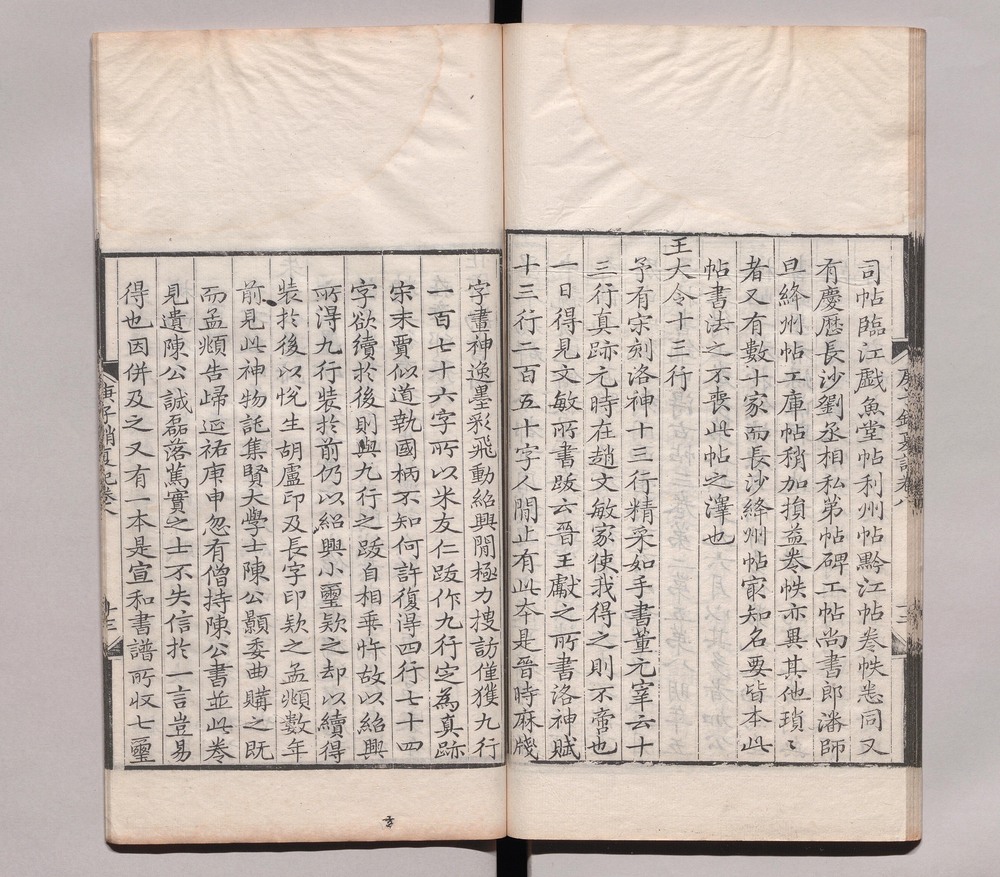 司帖臨江戲魚堂帖利州帖黔江帖卷帙悉同又
有慶歷長沙劉丞相私第帖碑工帖尚書郎潘師
旦絳州帖工庫帖稍加損益卷帙亦異其他瑣〻
者又有數十家而長沙絳州帖㝡知名要皆本此
帖書法之不喪此帖之澤也
王大令十三行
予有宋刻洛神十三行精采如手書董元宰云十
三行真跡元時在趙文敏家使我得之則不啻也
一日得見文敏所書跋云晉王獻之所書洛神賦
十三行二百五十字人間止有此本是晉時麻牋
字畫神逸墨彩飛動紹興間極力搜訪僅獲九行
一百七十六字所以米友仁跋作九行定為真跡
宋末賈似道執國柄不知何許復得四行七十四
字欲續於後則與九行之跋自相乖忤故以紹興
所得九行裝於前仍以紹興小璽欵之却以續得
裝於後以悅生胡盧印及長字印欵之孟頫數年
前見此神物託集賢大學士陳公顥委曲購之既
而孟頫告歸延祐庚申忽有僧持陳公書並此卷
見遺陳公誠磊落篤實之士不失信於一言豈易
得也因併及之又有一本是宣和書譜所收七璽
庚子銷夏記卷八
十三